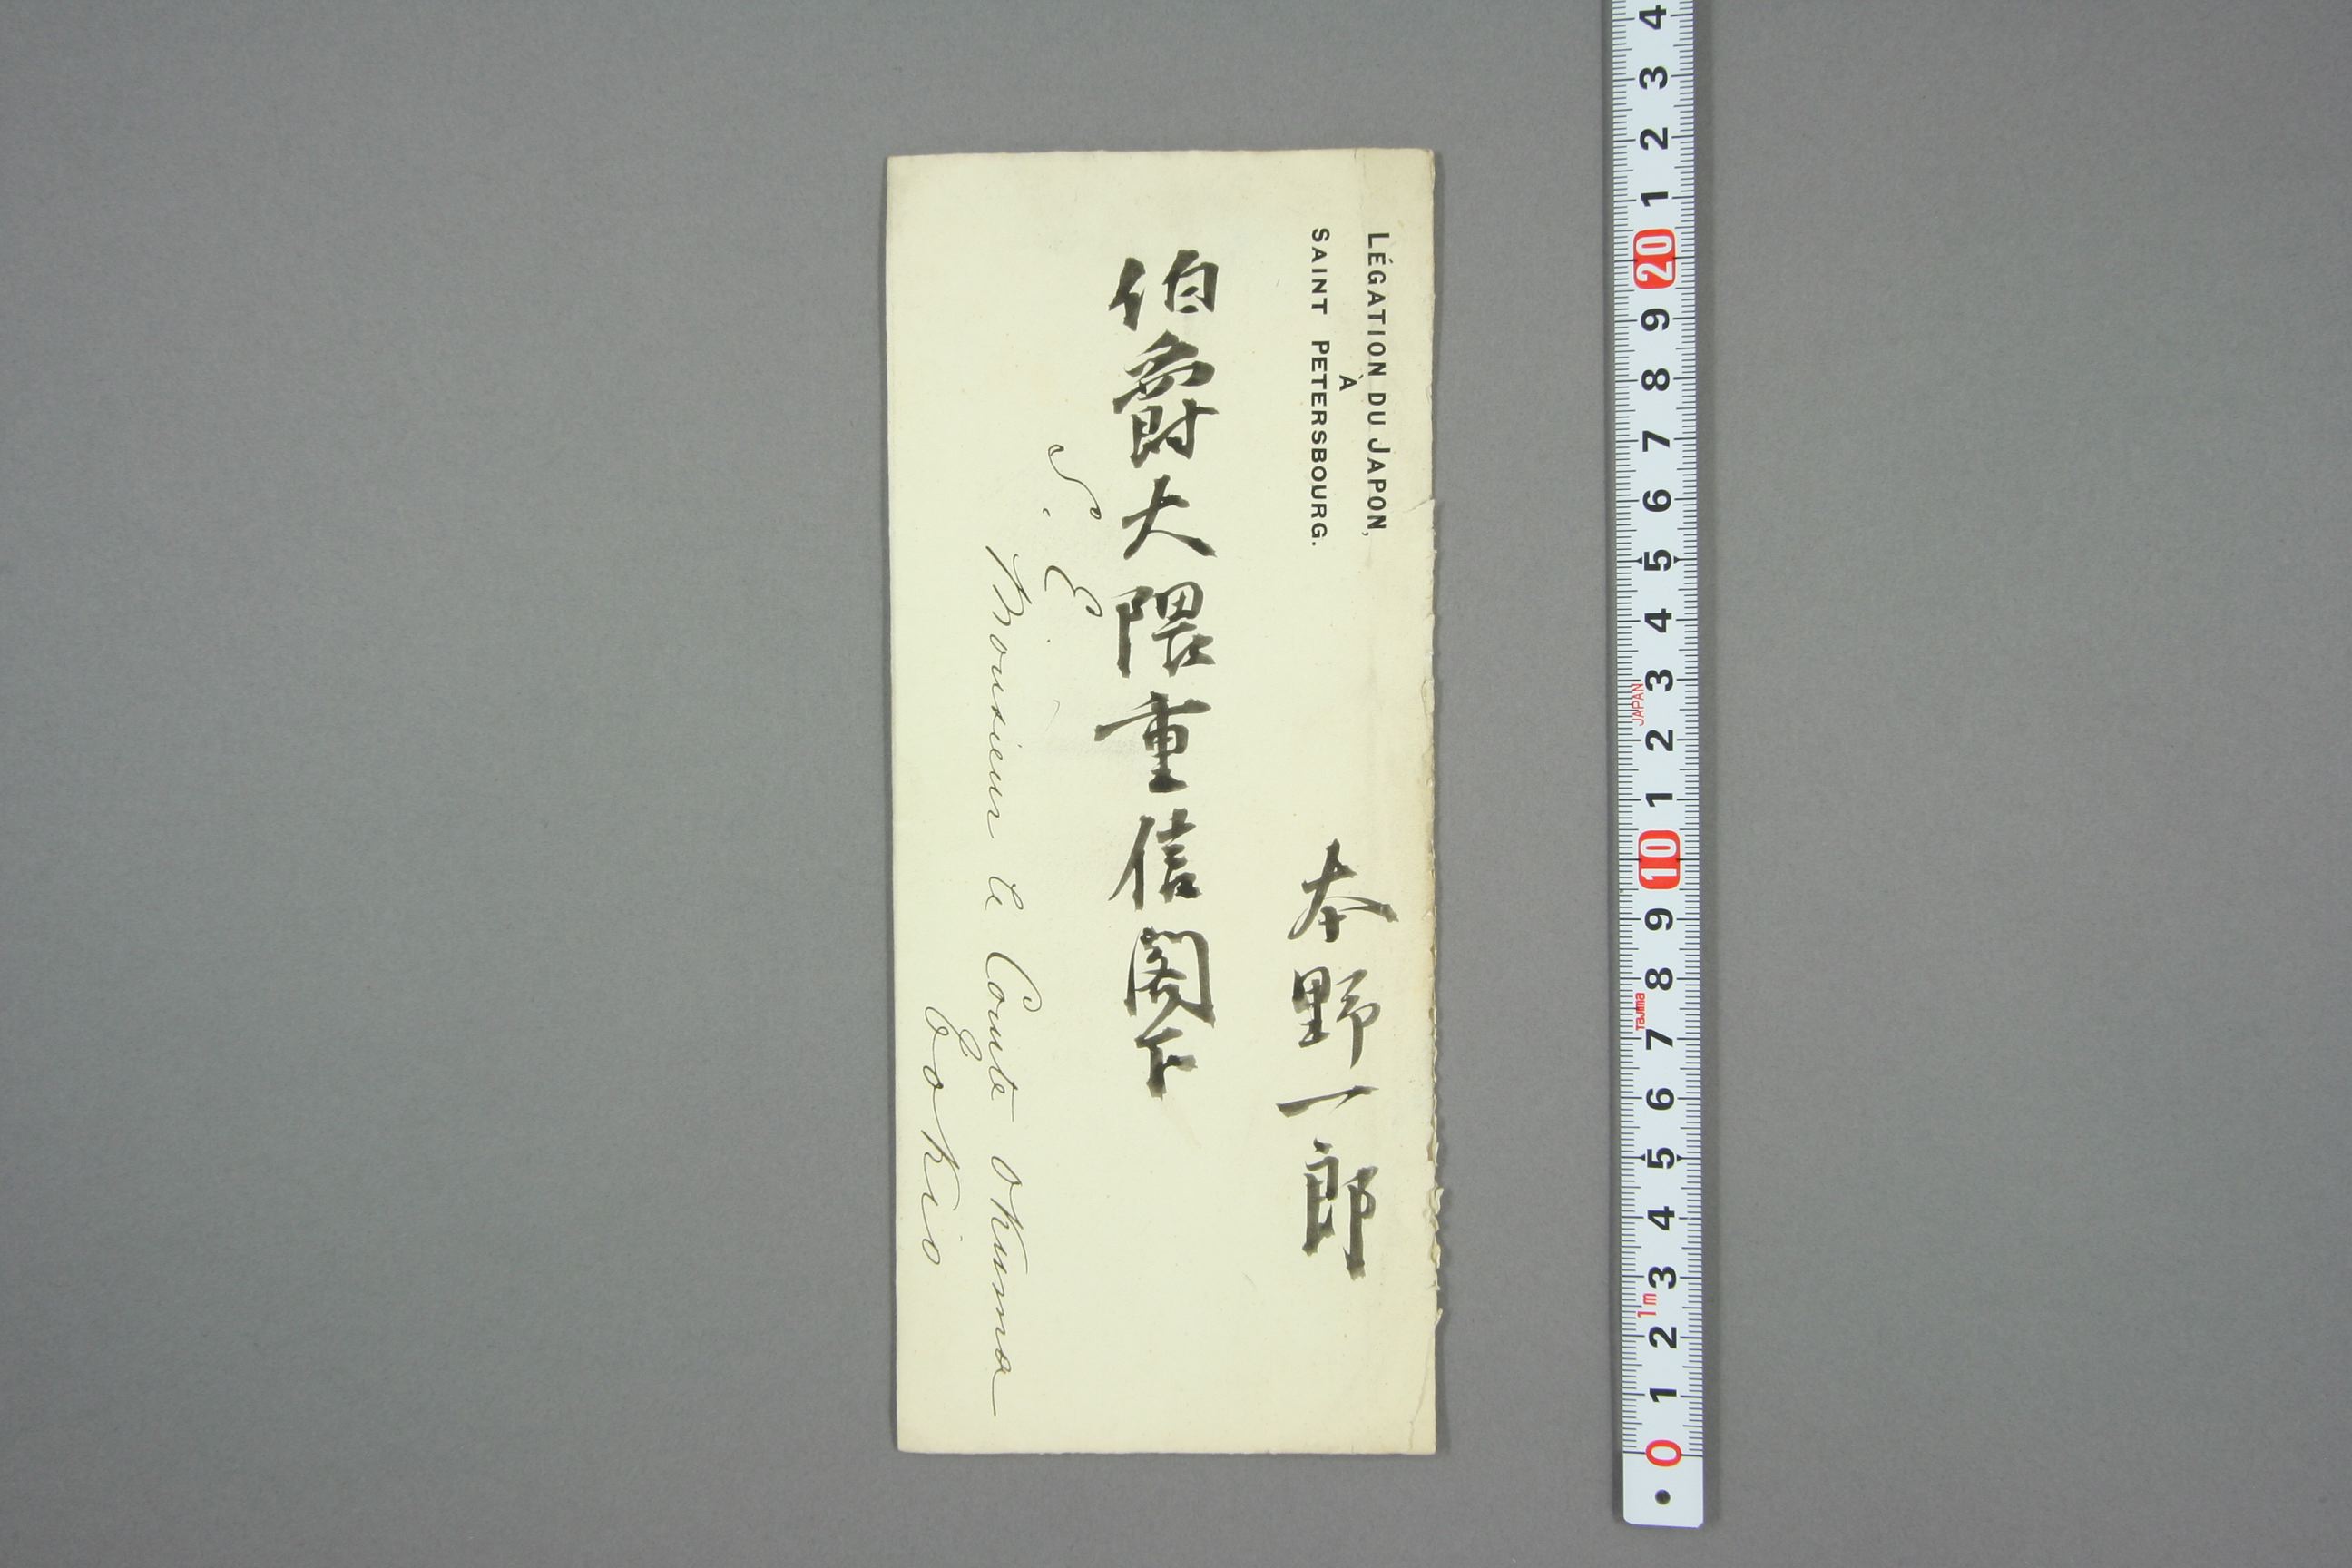 LÉGATION DU JAPON,
À
SAINT PETERSBOURG.
本野一郎
伯爵大隈重信閣下
S. E.
Monsieur le Comte Okuma
Tokio
4 3 2 1 20 9 8 7 6 5 4 3 2 1 10 9 8 7 6 5 4 3 2 1 0
JAPAN
Tajima
1m